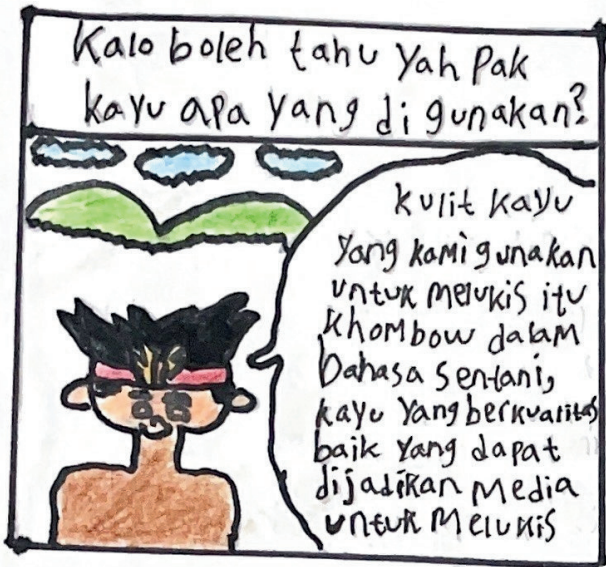 Kalo boleh tahu Yah Pak
kayu apa yang di gunakan?
kulit kayu
yang kami gunakan
untuk melukis itu
khombow dalam
bahasa sentani,
kayu yang berkualitas
baik yang dapat
dijadikan media
untuk melukis